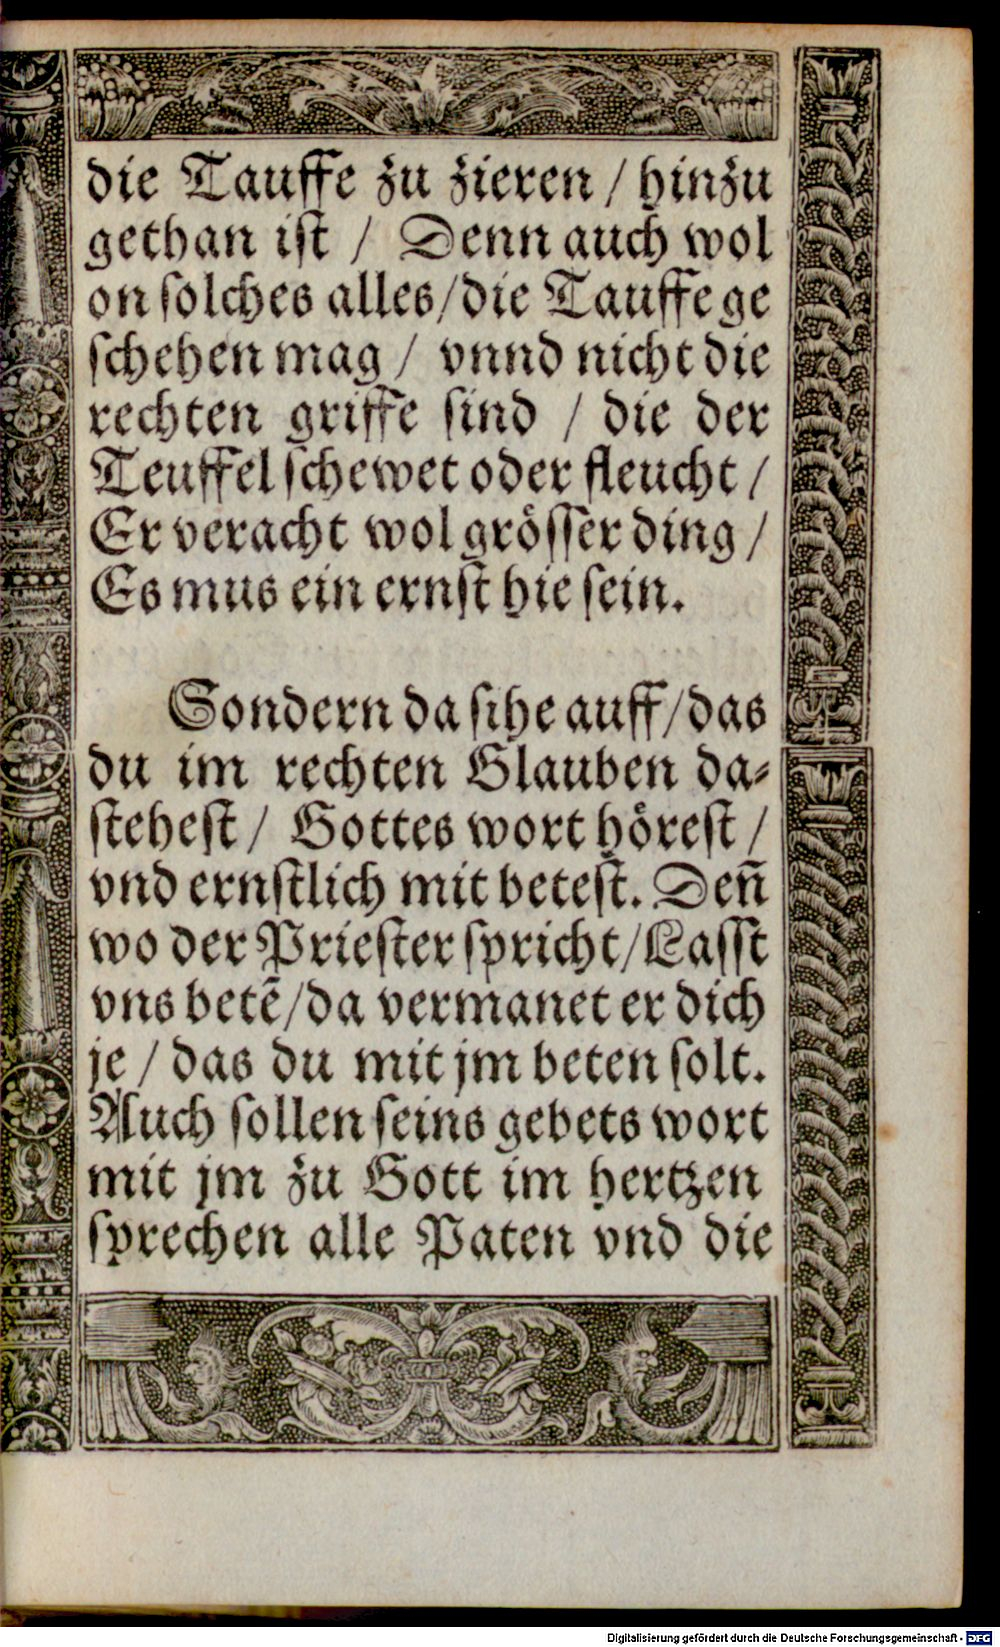 die Tauffe zu zieren / hinzu
gethan ist / Denn auch wol
on solches alles/die Tauffe ge
schehen mag / vnnd nicht die
rechten griffe sind / die der
Teuffel schewet oder fleucht /
Er veracht wol grösser ding /
Es mus ein ernst hie sein.
Sondern da sihe auff/das
du im rechten Glauben da⸗
stehest / Gottes wort hörest /
vnd ernstlich mit betest. Deñ
wo der Priester spricht/Lasst
vns betē/da vermanet er dich
je / das du mit jm beten solt.
Auch sollen seins gebets wort
mit jm zu Gott im hertzen
sprechen alle Paten vnd die
Digitalisierung gefördert durch die Deutsche Forschungsgemeinschaft - DFG